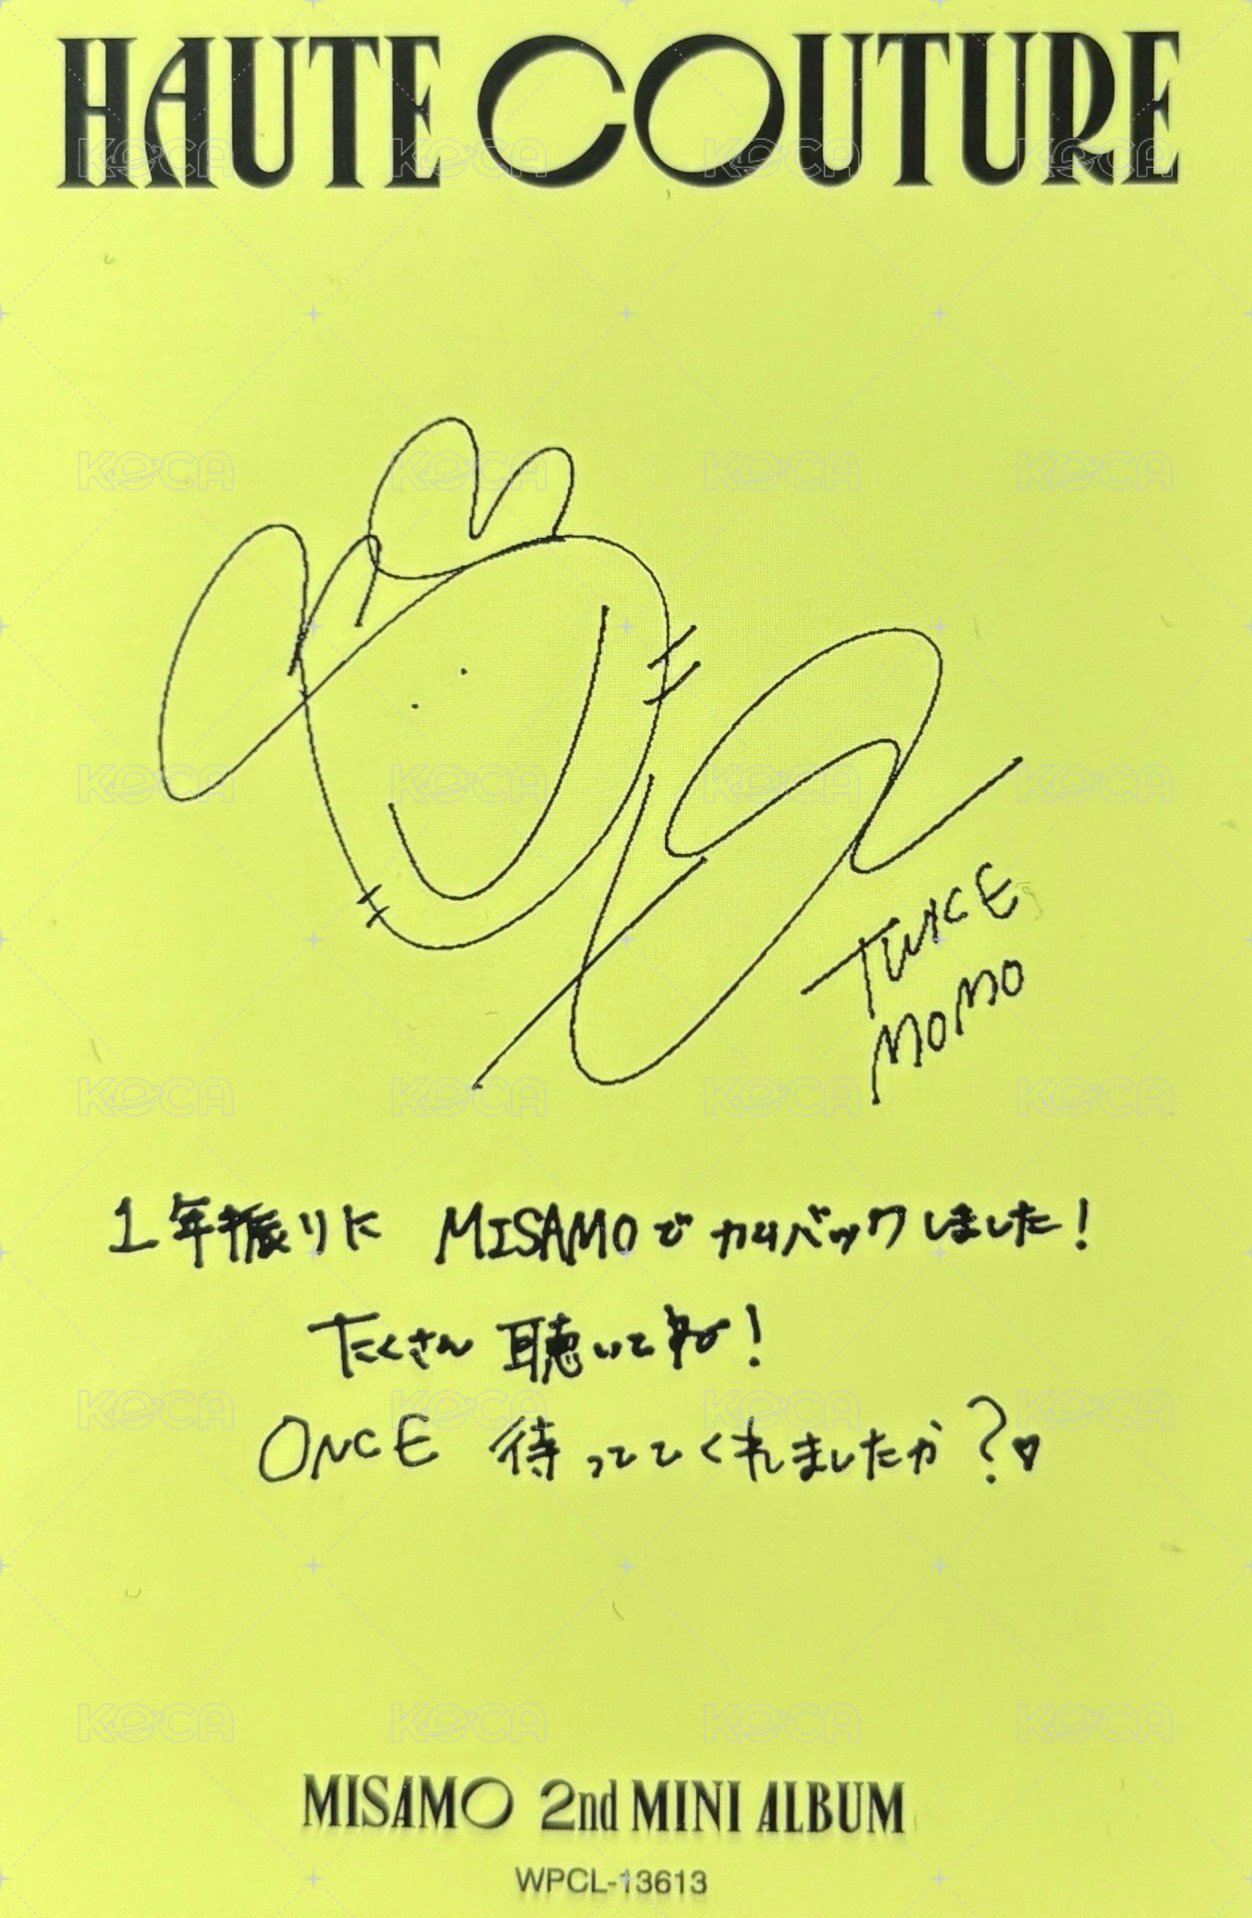 HAUTE COUTURE
TWICE
MOMO
1年振りに MISAMOでカムバックしました！
たくさん 聴いてね！
ONCE 待っててくれましたか？♥
MISAMO 2nd MINI ALBUM
WPCL-13613
KOCA